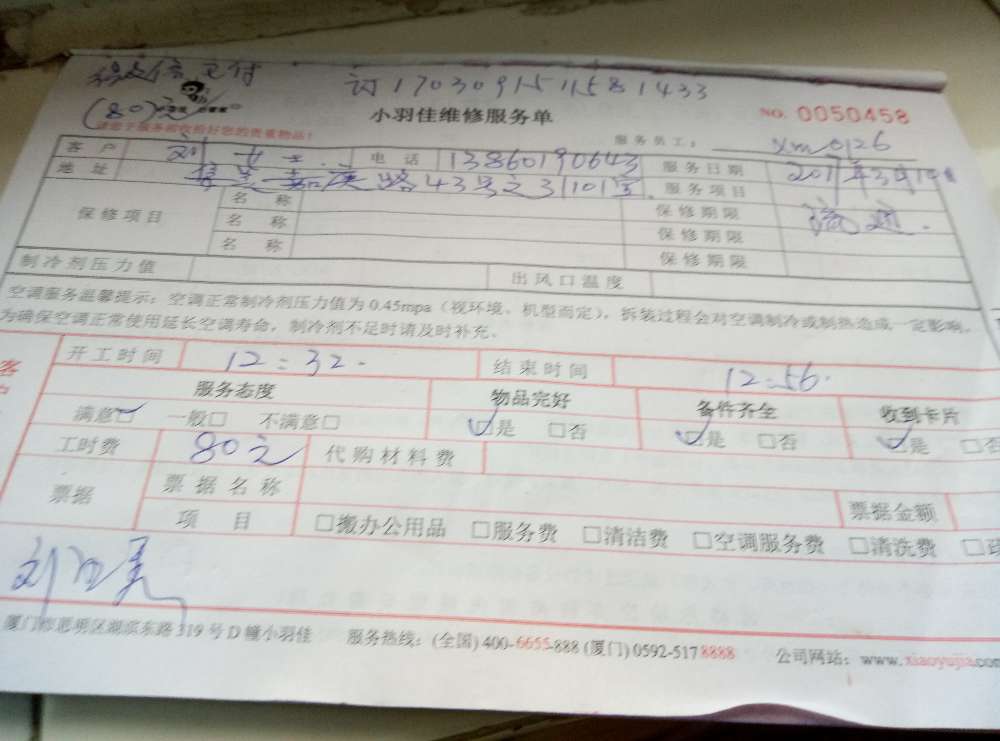 微信支付 订170309151581433
(80)元 小羽佳维修服务单 NO. 0050458
请您于服务前收拾好您的贵重物品! 服务员工: xm0126
客户 刘女士 电话 13860190643 服务日期 2017年3月
地址 嘉庚路43号之31101室 服务项目 疏通.
保修项目 名称 保修期限
名称 保修期限
名称 保修期限
制冷剂压力值 出风口温度
空调服务温馨提示:空调正常制冷剂压力值为0.45mpa(视环境、机型而定),拆装过程会对空调制冷或制热造成一定影响,
为确保空调正常使用延长空调寿命,制冷剂不足时请及时补充。
开工时间 12:32. 结束时间 12:56.
服务态度 物品完好 备件齐全 收到卡片
满意☑ 一般□ 不满意□ ☑是 □否 ☑是 □否 ☑是 □否
工时费 80元 代购材料费
票据 票据名称 票据金额
项目 □搬办公用品 □服务费 □清洁费 □空调服务费 □清洗费
厦门市思明区湖滨东路319号D幢小羽佳 服务热线:(全国)400-6655-888 (厦门)0592-5178888 公司网站:www.xiaoyujia.com